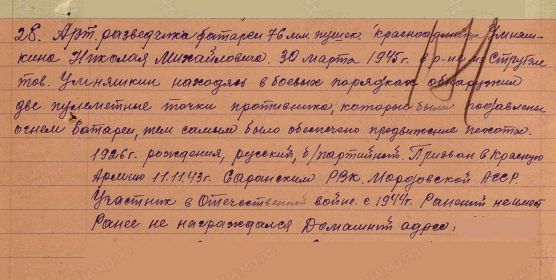 28. Арт. разведчика батареи 76 мм. пушек. Красноармейца Умняш-
кина Николая Михайловича. 30 марта 1945 г. в р-не
тов. Умняшкин находясь в боевых порядках обнаружил
две пулеметные точки противника, которые были подавлены
огнем батареи, тем самым было обеспечено продвижение пехоты.
1926 г. рождения, русский, б/партийный. Призван в Красную
Армию 11.11.43 г. Саранским РВК. Мордовской АССР.
Участник в Отечественной войне с 1944 г. Ранений не имеет
Ранее не награждался Домашний адрес: